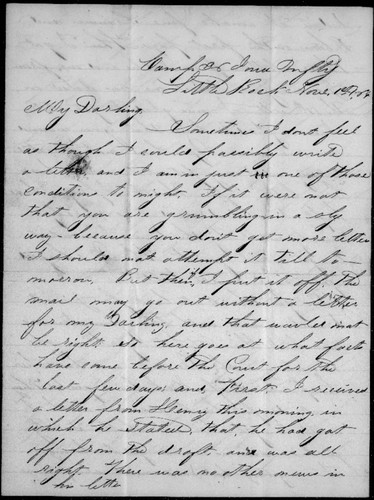 Camp Iowa Infty
Little Rock Nov. 1st
My Darling,
Sometimes I dont feel
as though I could possibly write
a letter and I am in just one of those
conditions to night. If it were not
that you are grumbling in a sly
way - because you don't get more letters
I should not attempt it till to-
morrow. But then, if I put it off the
mail may go out without a letter
for my Darling, and that would not
be right. So here goes at what facts
have come before the Court for the
last few days and First. I received
a letter from Henry this morning in
which he stated, that, he had got
off from the draft, and was all
right. There was no other news in
his letter